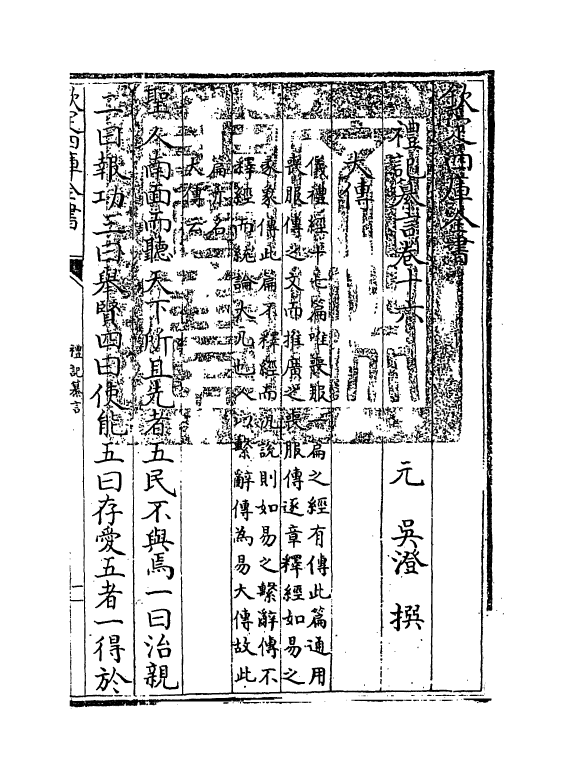 欽定四庫全書
禮記纂言卷十六
元 吳澄 撰
大傳
儀禮經十七篇唯喪服一篇之經有傳此篇通用
喪服傳之文而推廣之喪服傳逐章釋經如易之
彖象傳此篇不釋經而汎說則如易之繫辭傳不
釋經而統論大凡也人以繫辭傳為易大傳故此
篇亦名大傳云
聖人南面而聽天下所且先者五民不與焉一曰治親
二曰報功三曰舉賢四曰使能五曰存愛五者一得於
欽定四庫全書
禮記纂言
一